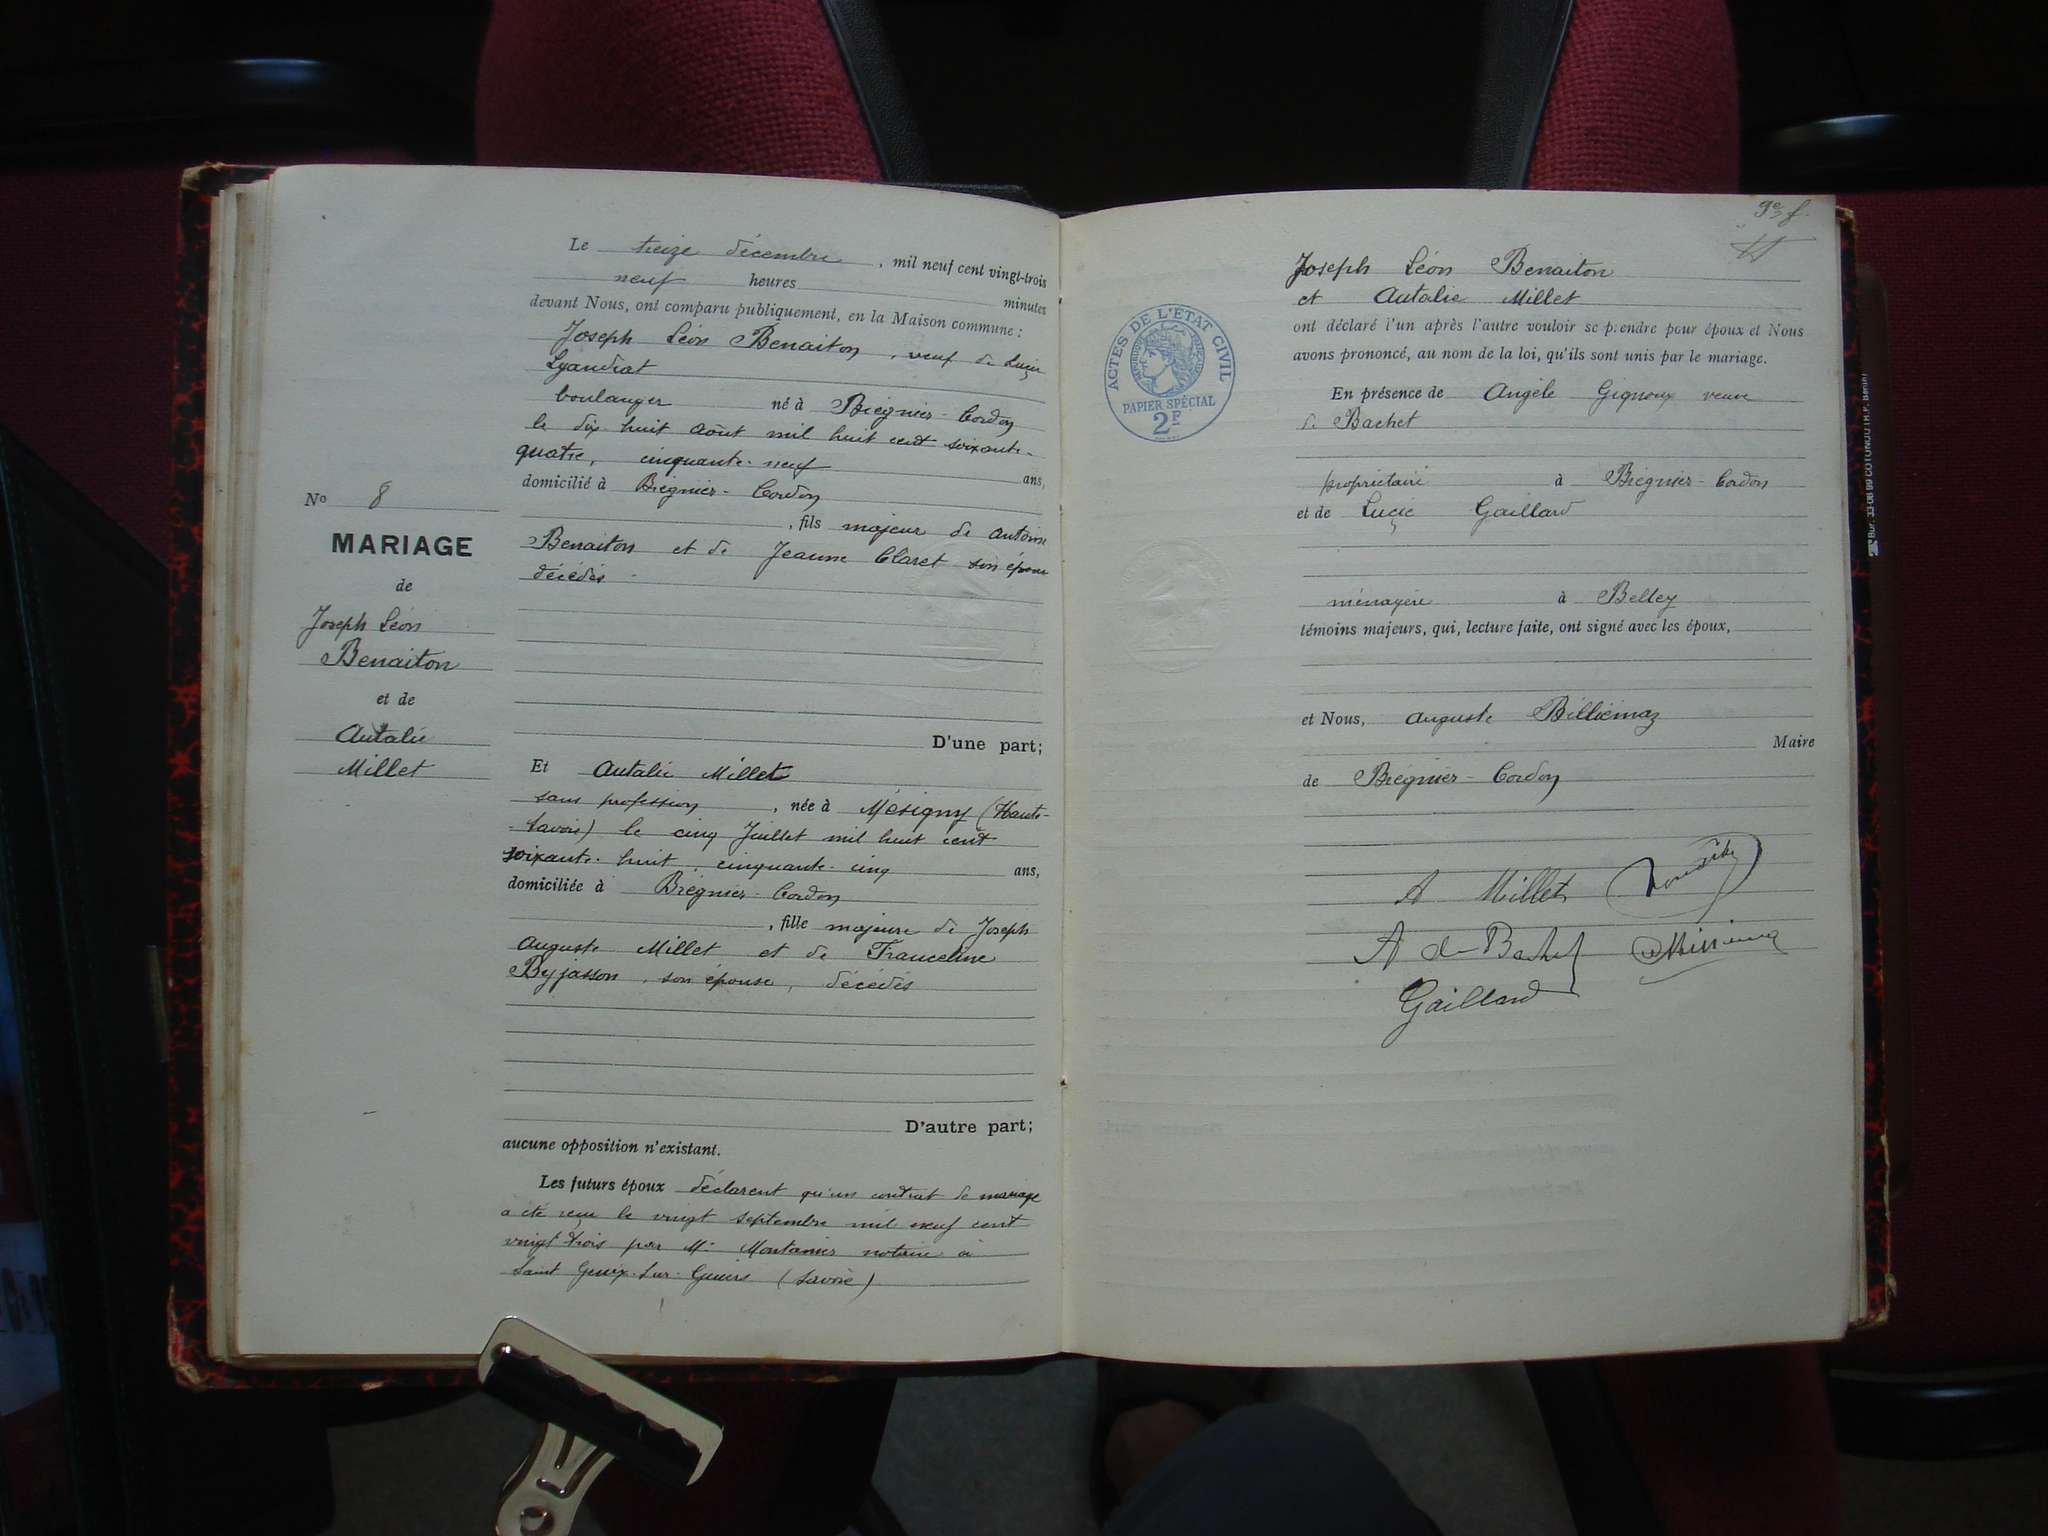 Le treize décembre, mil neuf cent vingt-trois
neuf heures minutes
devant Nous, ont comparu publiquement, en la Maison commune :
Joseph Léon Benaiton, veuf de Lucie
Lyandrat
boulanger né à Brégnier-Cordon
le dix huit août mil huit cent soixante-
quatre, cinquante-neuf ans,
domicilié à Brégnier-Cordon
, fils majeur de Antoine
Benaiton et de Jeanne Claret son épouse
décédés
D'une part;
No 8
MARIAGE
de
Joseph Léon
Benaiton
et de
Autalie
Millet
Et Autalie Millet
sans profession, née à Mésigny (Haute-
Savoie) le cinq Juillet mil huit cent
soixante-huit, cinquante-cinq ans,
domiciliée à Brégnier-Cordon
, fille majeure de Joseph
Auguste Millet et de Franceline
Byjasson, son épouse, décédés
D'autre part;
aucune opposition n'existant.
Les futurs époux déclarent qu'un contrat de mariage
a été reçu le vingt septembre mil neuf cent
vingt trois par Me Montanier notaire à
Saint Genix-sur-Guiers (Savoie)
9e f.
Joseph Léon Benaiton
et Autalie Millet
ont déclaré l'un après l'autre vouloir se prendre pour époux et Nous
avons prononcé, au nom de la loi, qu'ils sont unis par le mariage.
ACTES DE L'ETAT CIVIL
PAPIER SPÉCIAL
2F
En présence de Angèle Gignoux veuve
de Bachet
propriétaire à Brégnier-Cordon
et de Lucie Gaillard
ménagère à Belley
témoins majeurs, qui, lecture faite, ont signé avec les époux,
et Nous, Auguste Billiémaz
Maire
de Brégnier-Cordon
A Millet
A de Bachet
Gaillard